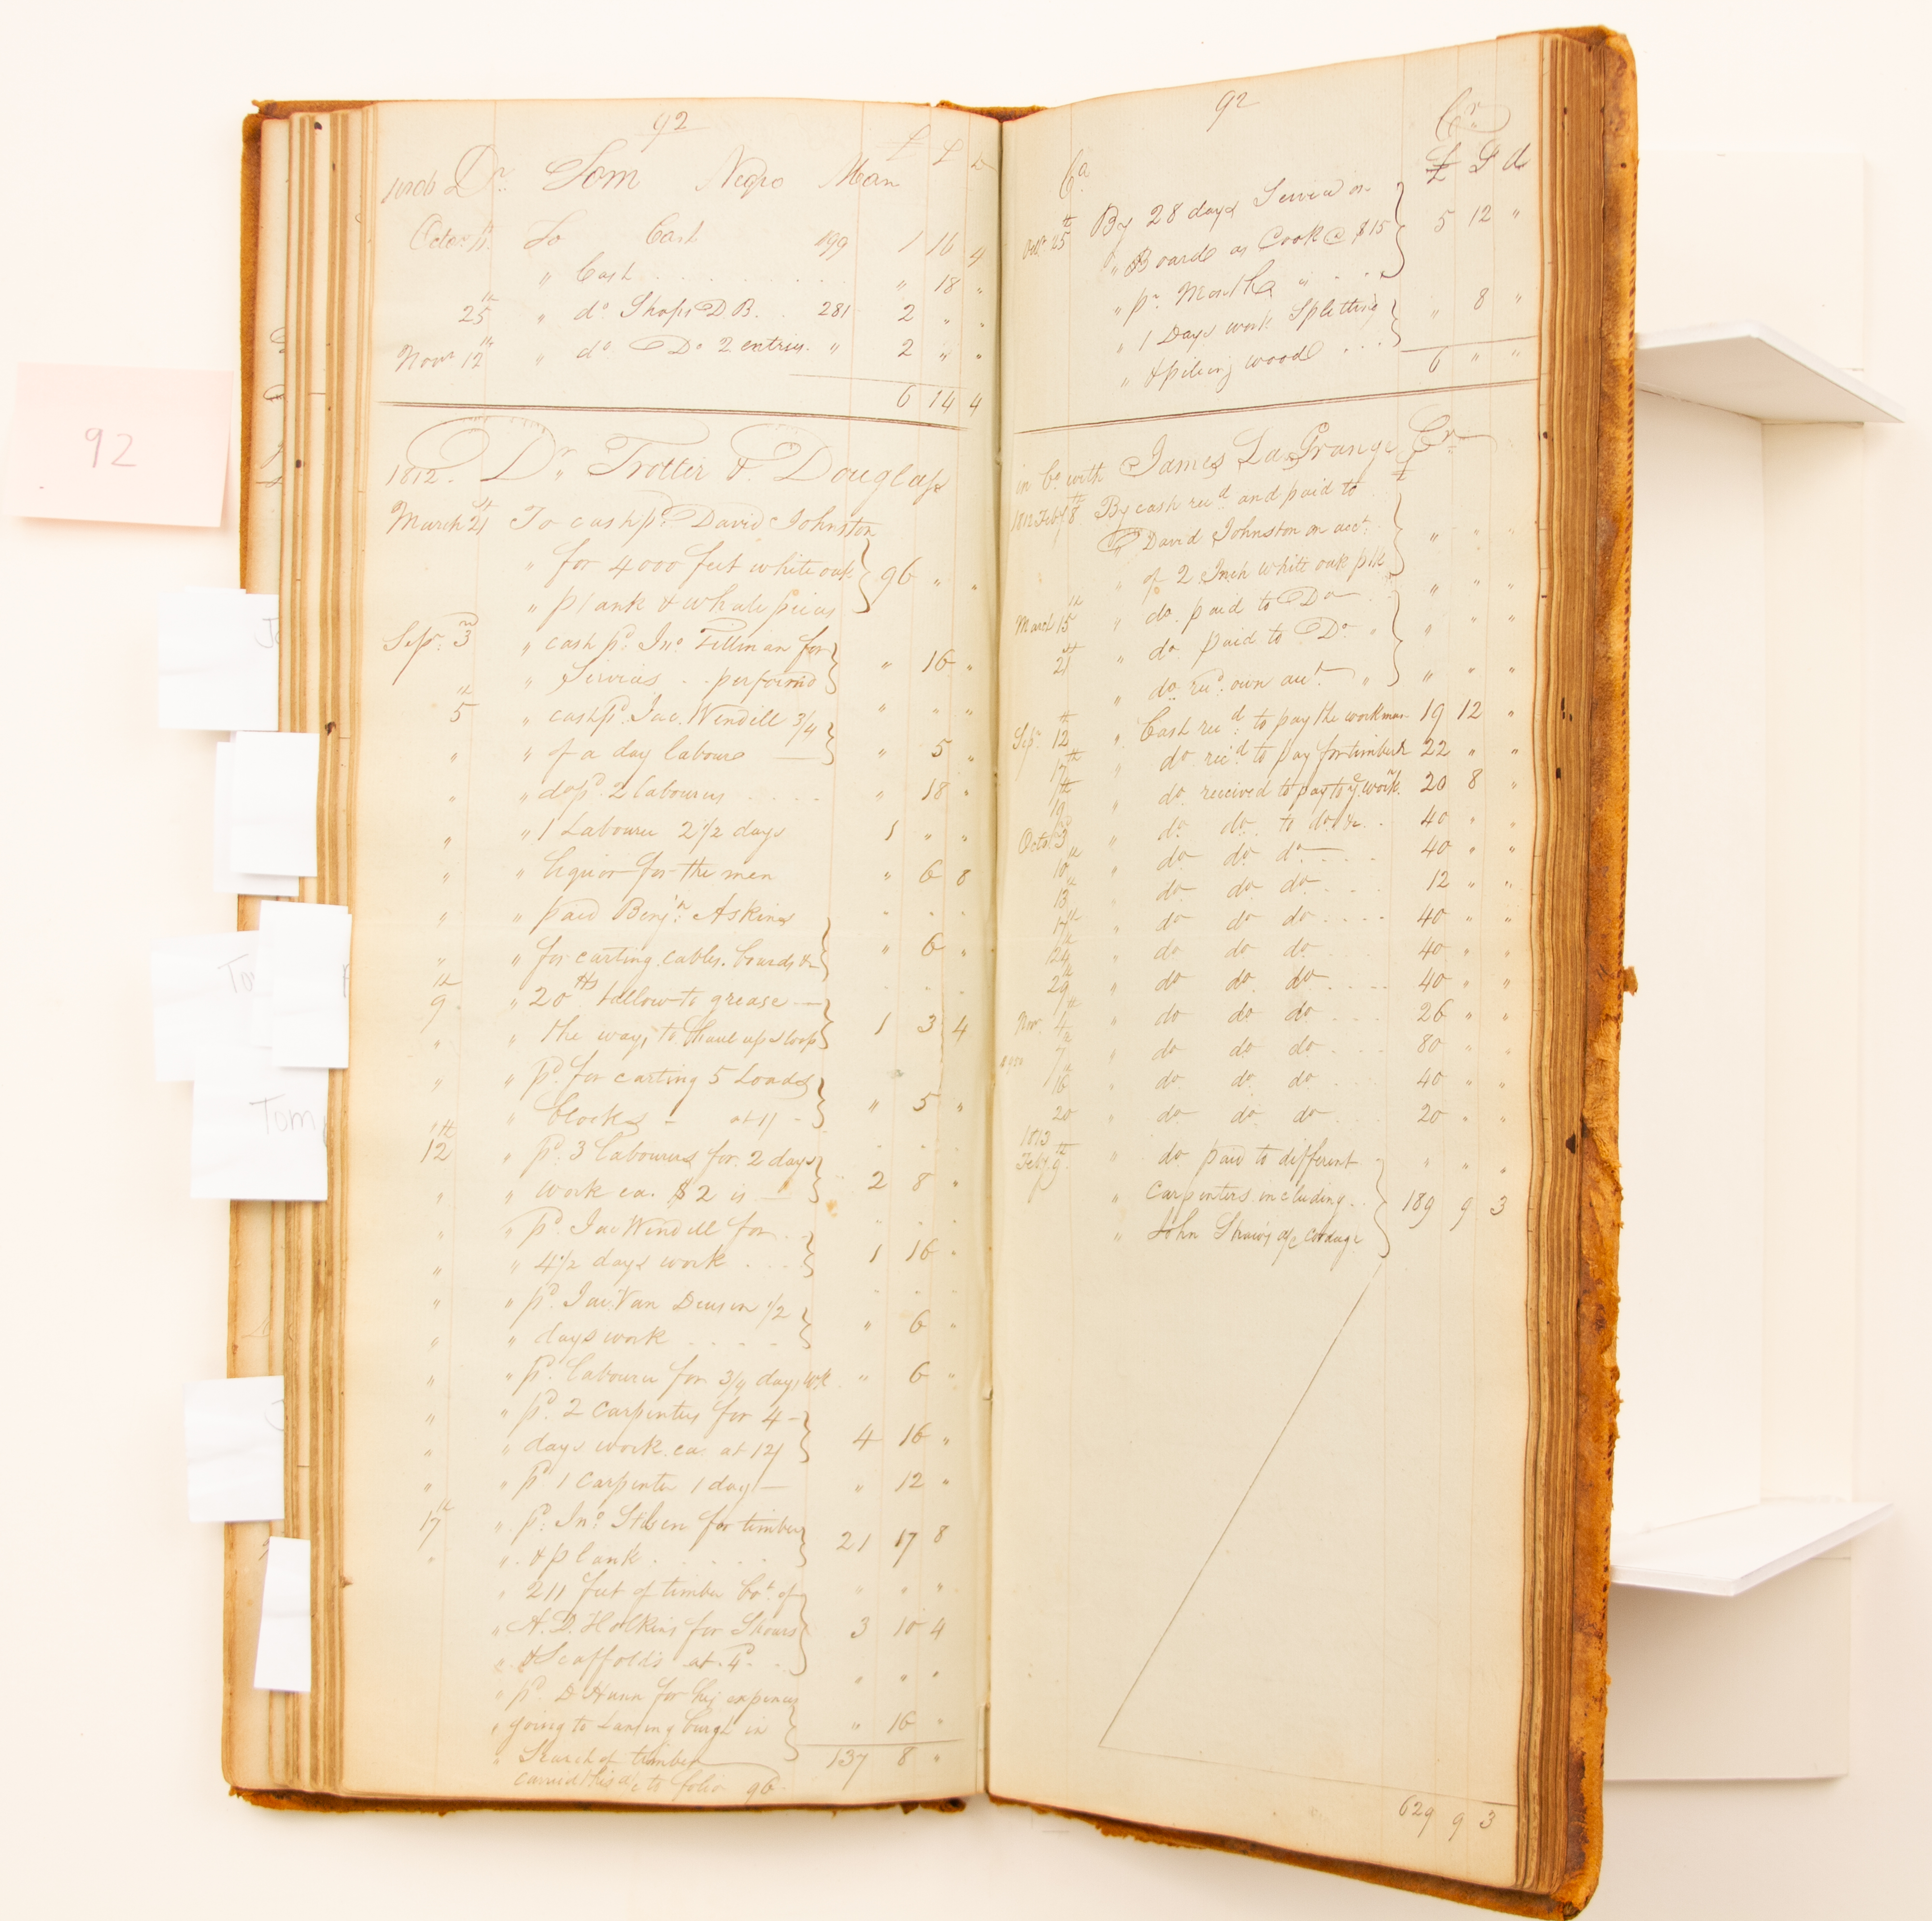 92
92
1806 Dr. Tom Negro Man £ S D
Octo. 11th To Cash 199 1 16 4
" Cash " 18 "
25th " do Shop D.B. 281 2 " "
Novr 12th " do Do 2 entries " 2 " "
6 14 4
1812. Dr. Trotter & Douglass
March 21st To cash pd. David Johnston
" for 4000 feet white oak 96 " "
" plank & whale pieces
Sepr. 3rd " cash pd. Jno. Tillman for " 16 "
" Servics performd
5th " cash pd. Jac. Wendell 3/4 " " "
" " of a day labour " 5 "
" " do pd. 2 labourers " 18 "
" " 1 Labourer 2 1/2 days 1 " "
" " liquor for the men " 6 8
" " paid Benjn. Askins
" " for carting cables, boards &c " 6 "
9th " 20 lbs tallow to grease
" " the ways to haul up sloop 1 3 4
" " pd. for carting 5 Loads
" blocks at 1/ " 5 "
12th " pd. 3 labourers for 2 days
" " work ea. $2 is 2 8 "
" " pd. Jac Wendell for
" " 4 1/2 days work 1 16 "
" " pd. Jac. Van Deusen 1/2
" " days work " 6 "
" " pd. labourer for 3/4 days wk " 6 "
" " pd. 2 carpenters for 4
" " days work ea. at 12/ 4 16 "
" " pd 1 carpenter 1 day " 12 "
17th " pd. Jno. for timber 21 17 8
" " & plank
" 211 feet of timber bot. of " " "
" A.D. for 3 10 4
" & Scaffolds at 4
" pd. D Hunn for his expences " " "
" going to Lansingburgh in " 16 "
" Search of timber 137 8 "
carried this a/c to folio 96
92
Cr.
Ca. £ S d
Octr. 25th By 28 days Service on 5 12 "
" Board as Cook @ $15
" pr. Month "
" 1 Days work Splitting " 8 "
" & pileing wood
6 " "
in Co. with James LaGrange Cr
1812 Feby 8th By cash recd. and paid to
" David Johnston on acct. " " "
" of 2 Inch white oak plk
March 15th " do. paid to Do " " "
21st " do. paid to Do. " " " "
" do. recd. own acct. " " " "
Sepr. 12th " Cash recd. to pay the workmen 19 12 "
17th " do recd. to pay for timber 22 " "
19th " do. received to pay to ye. workn. 20 8 "
Octo. 3d " do do. to do. &c 40 " "
10th " do do do 40 " "
13th " do do do 12 " "
17th " do do do 40 " "
24th " do do do 40 " "
29th " do do. do 40 " "
Novr. 4th " do do do 26 " "
7th " do do. do 80 " "
16th " do do. do 40 " "
20 " do do. do 20 " "
1813
Feby. 9th " do. paid to different " " "
" carpenters including 189 9 3
" John Shaw's a/c cordage
629 9 3